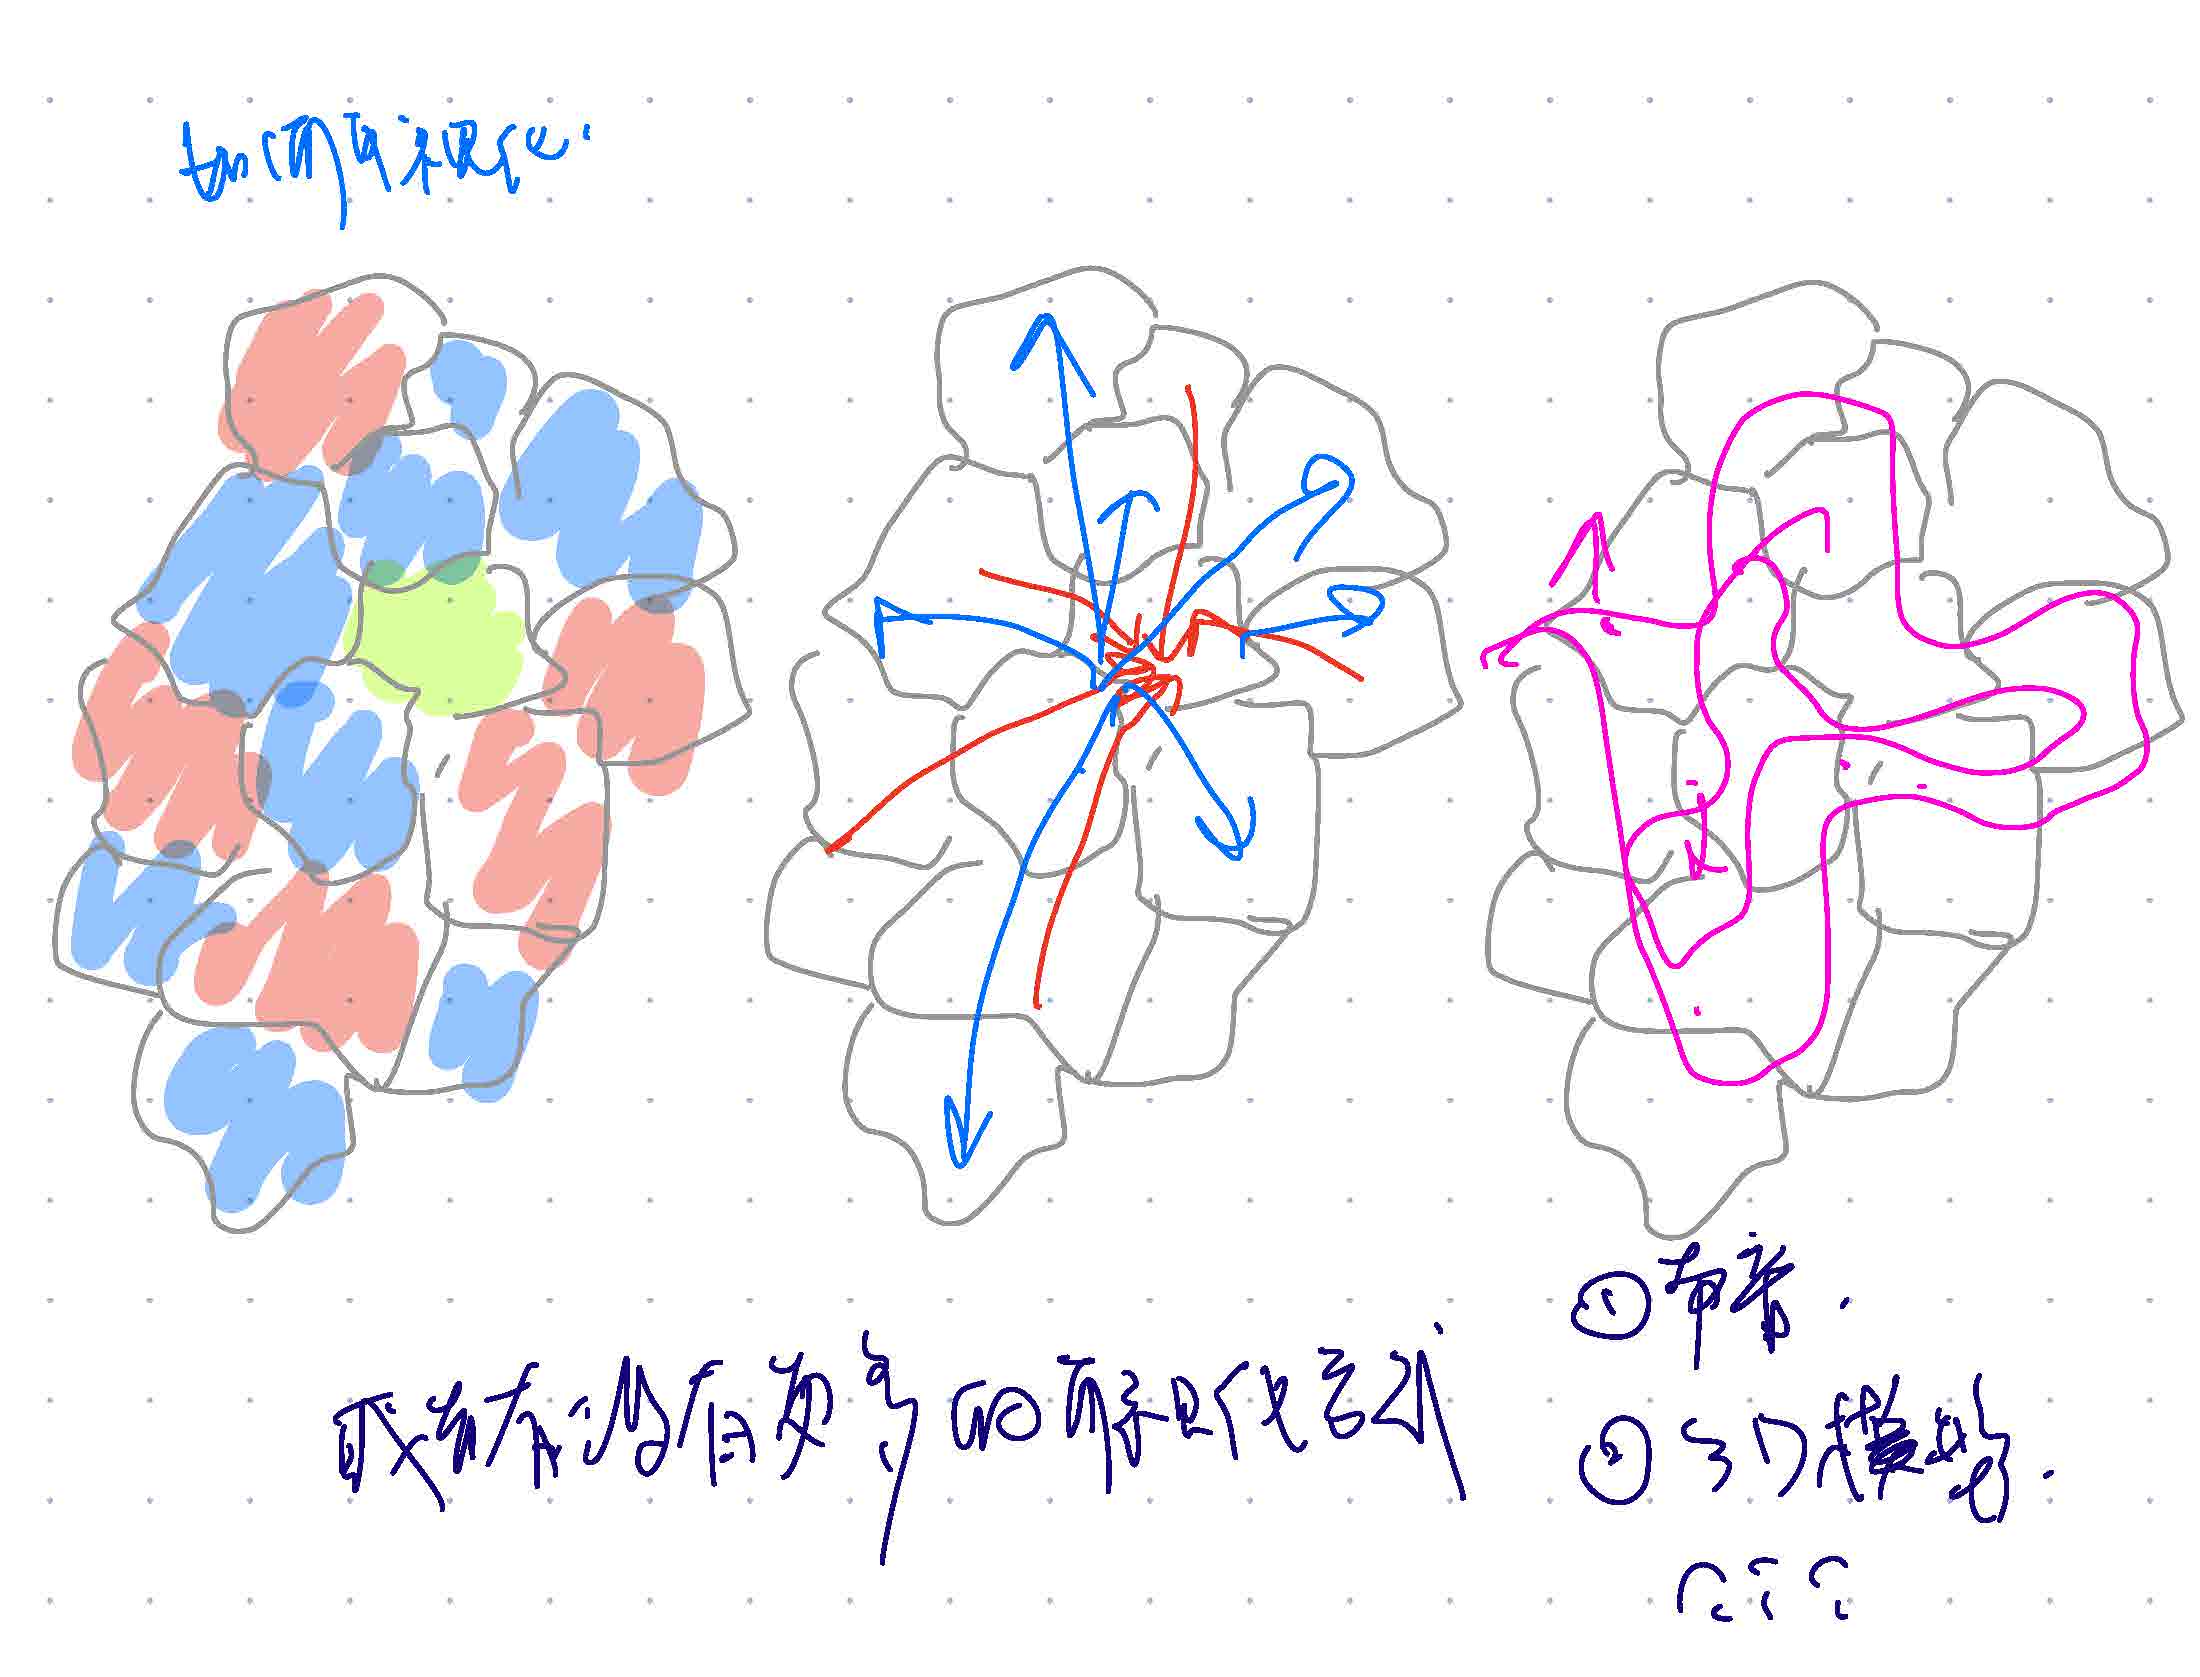 如何可视化.
或者有没有更多的可视化方式
① 布帘.
② 3D模型.